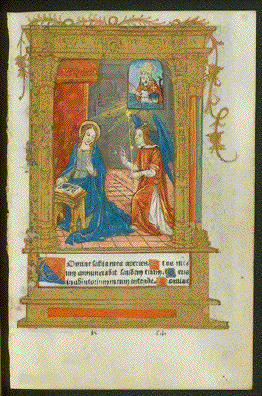 Domine labia mea aperies. Et os me
um annunciabit laudem tuam. Deus
in adiutorium meum intende. Domine